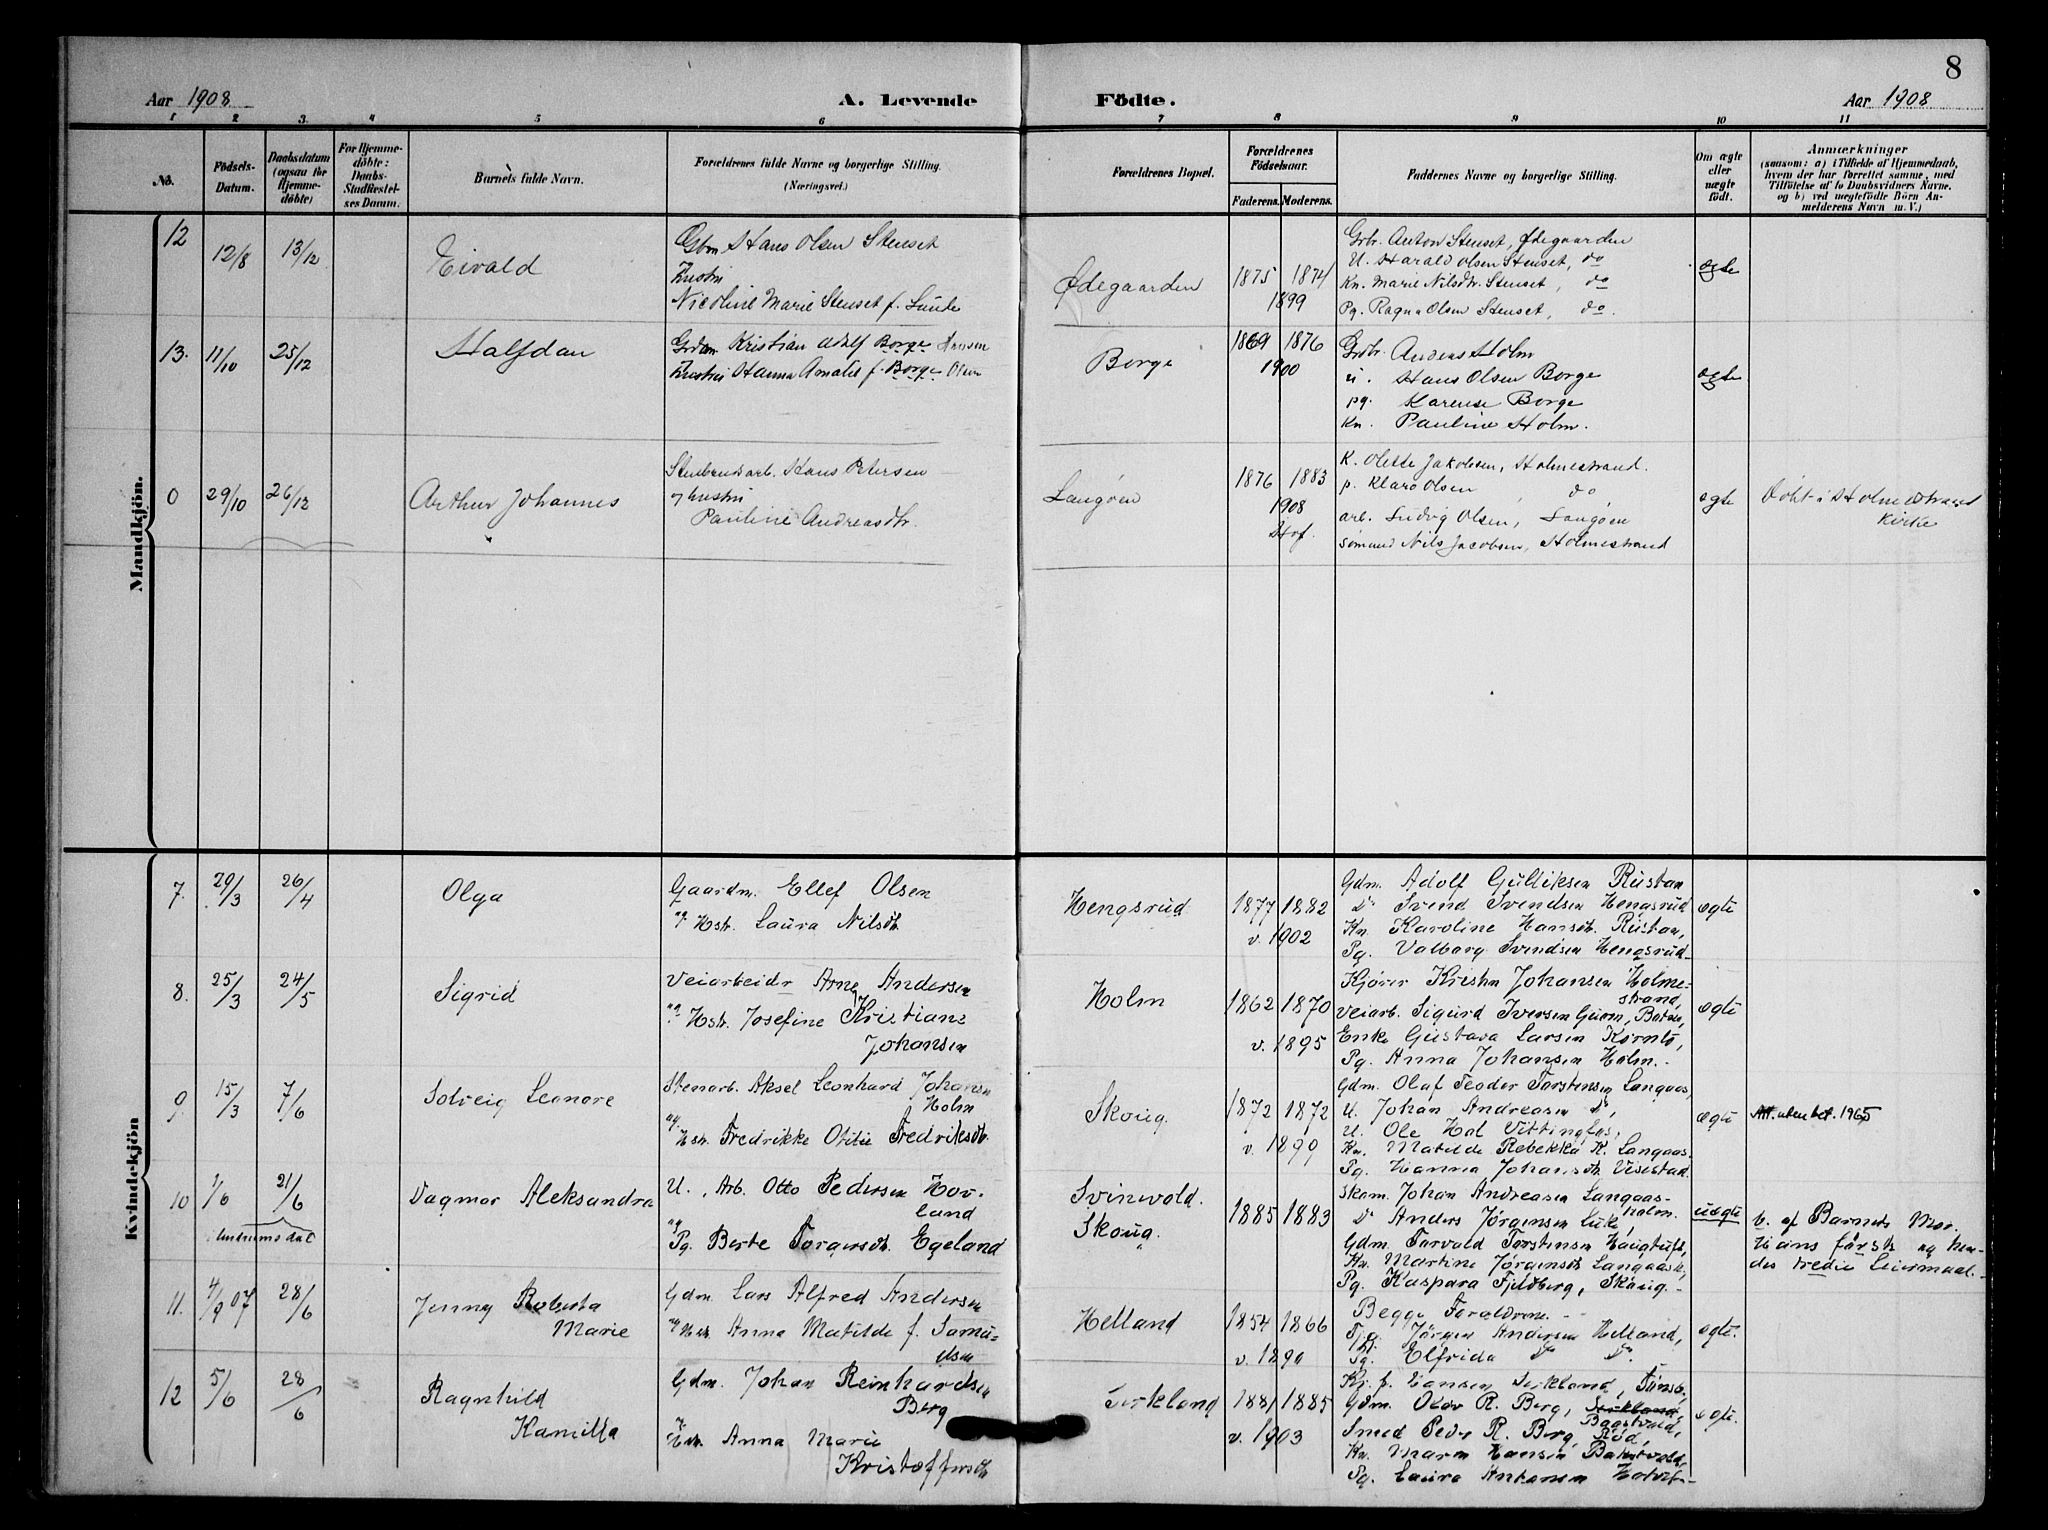 8
Aar 1908
A. Levende
Födte.
Aar 1908
1 2 3. 4 5 6 7 8 9 10 11
No.
Födsels-
Datum.
Daabsdatum
(ogsaa for
Hjemme-
döbte)
For Hjemme-
döbte:
Daabs-
Stadfæstel-
ses Datum.
Barnets fulde Navn.
Forældrenes fulde Navne og borgerlige Stilling.
(Næringsvei.)
Forældrenes Bopæl.
Forældrenes
Födselsaar.
Faderens.
Moderens.
Faddernes Navne og borgerlige Stilling.
Om ægte
eller
uægte
födt.
Anmærkninger
(saasom: a) i Tilfælde af Hjemmedaab,
hvem der har forrettet samme, med
Tilföielse af to Daabsvidners Navne.
og b) ved uægtefödte Börn An-
melderens Navn m. V.)
Mandkjön.
12
12/8
13/12
Eivald
Gbm Hans Olsen Stenset
Hustru
Nicoline Marie Stenset f. Lunde
Ødegaarden
1875 1874
1899
Grbr. Anton Stenset, Ødegaarden
U. Harald Olsen Stenset, do
Kn. Marie Nilsdtr. Stenset, do
Pg. Ragna Olsen Stenset, do.
ægte
13.
11/10
25/12
Halfdan
Kristian Adolf Borge Hansen
Hustru Hanna Amalie f. Borge Olsen
Borge
1869 1876
1900
Grbr. Anders Holm
u. Hans Olsen Borge
pg. Karense Borge
Kn. Pauline Holm.
ægte
0
29/10
26/12
Arthur Johannes
Stenbrudsarb. Hans Petersen
og hustru
Pauline Andreasdtr.
Langøen
1876 1883
1908
Hof.
K. Olette Jakobsen, Holmestrand.
p. Klara Olsen do
arb. Ludvig Olsen, Langøen
sømand Nils Jacobsen, Holmestrand
ægte
Døbt i Holmestrand
Kirke
Kvindekjön
7.
29/3
26/4
Olga
Gaardm. Ellef Olsen
og Hstr. Laura Nilsdtr.
Hengsrud
1877 1882
v. 1902
Gdm. Adolf Gulliksen Rustan
Do Svend Svendsen Hengsrud
Kn. Karoline Hansdtr. Rustan,
Pg. Valborg Svendsen Hengsrud.
ægte
8.
25/3
24/5
Sigrid
Veiarbeidr Arne Andersen
og Hstr. Josefine Kristiane
Johansen
Holm
1862 1870
v. 1895
Kjører Kristen Johansen Holme-
strand,
Veiarb. Sigurd Iversen
Enke Gustava Larsen
Pg. Anna Johansen Holm.
ægte
9
15/3
7/6
Solveig Leonore
Stenarb. Aksel Leonhard Johansen
Holm
og Hstr. Fredrikke Otilie Fredriksdtr.
Skoug.
1872 1872
v. 1899
Gdm. Olaf Teodor Torstensen Langaas,
U. Johan Andreasen Do,
U. Ole Hol Vittingfos,
Kn. Matilde Rebekka K. Langaas.
Pg. Hanna Johansdtr. Vesestad.
ægte
Att. uten bet. 1965
10
1/6
21/6
Dagmar Aleksandra
U., Arb. Otto Pedersen Hov-
land
og Pg. Berte Torgersdtr. Egeland
Svinevold.
Skoug.
1885 1883
Skom. Johan Andreasen Langaas-
holm.
Do Anders Jørgensen Luke,
Gdm. Torvald Torstensen Haugtuft,
Kn. Martine Jørgensdtr. Langaas,
Pg. Kaspara Fjeldberg, Skoug.
uægte
U. af Barnets Mor.
Hans første og hen-
des tredie Leiermaal.
11.
4/9 07
28/6
Jenny Roberta
Marie
Gdm. Lars Alfred Andersen
og Hstr. Anna Matilde f. Samu-
elsen
Helland
1854 1866
v. 1890
Begge Forældrene.
Jørgen Andersen Helland,
Pg. Elfrida Do Do.
ægte.
12
5/6
28/6
Ragnhild
Kamilla
Gdm. Johan Reinhardsen
Berg
Hstr. Anna Marie
Kristoffersdtr.
Sirkland
1881 1885
v. 1903
Hansen Sirkland, Tønsb.
Gdm. Olav R. Berg, Sirkland
Bagstvold,
Smed Peder R. Berg, Rød,
Kn. Maren Hansen Bakstvold,
Pg. Laura Antonsen
ægte.